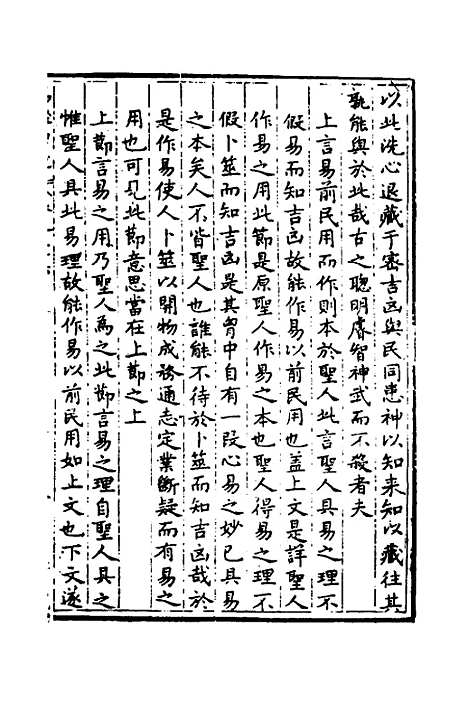 以此洗心退藏于密吉凶與民同患神以知来知以藏往其
孰能與於此哉古之聰明睿智神武而不殺者夫
上言易前民用而作則本於聖人此言聖人具易之理不
假易而知吉凶故能作易以前民用也蓋上文是詳聖人
作易之用此節是原聖人作易之本也聖人得易之理不
假卜筮而知吉凶是其胷中自有一段心易之妙已具易
之本矣人不皆聖人也誰能不待於卜筮而知吉凶哉於
是作易使人卜筮以開物成務通志定業斷疑而有易之
用也可見此節意思當在上節之上
上節言易之用乃聖人為之此節言易之理自聖人具之
惟聖人具此易理故能作易以前民用如上文也下文遂